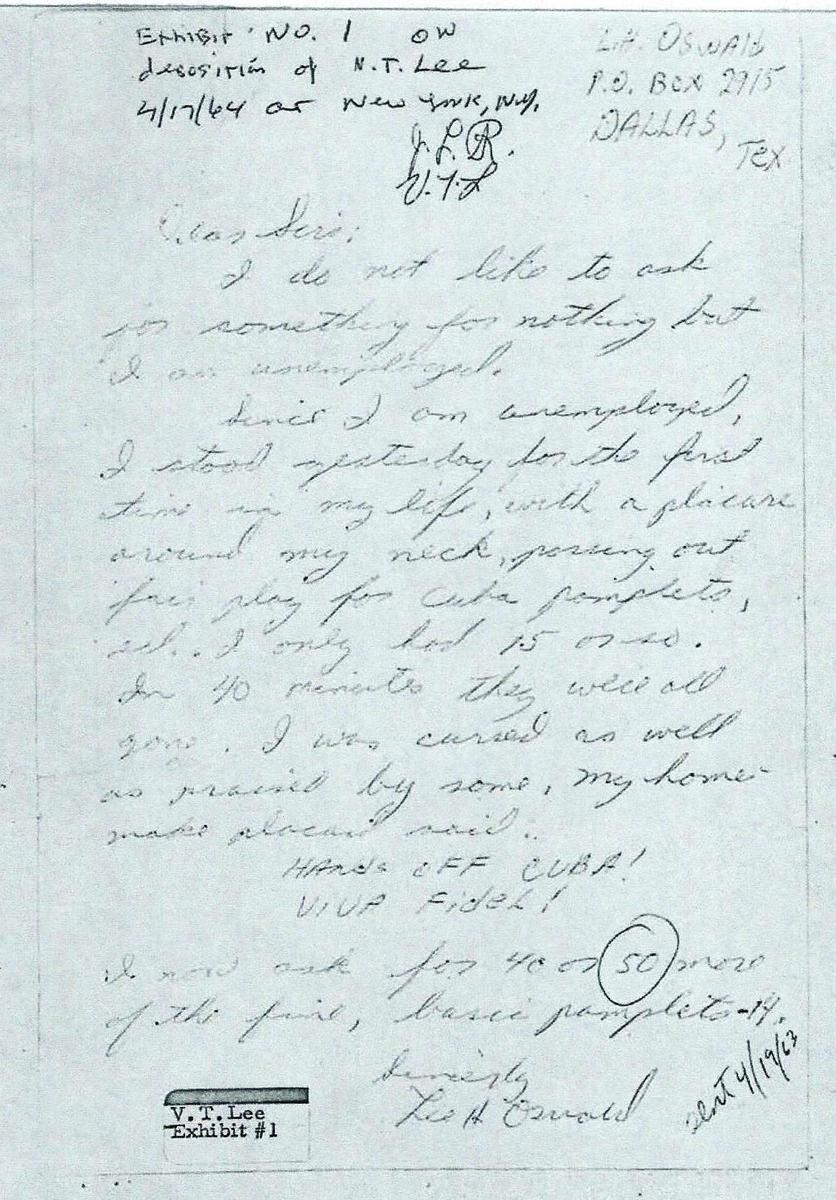 Exhibit No. 1 on
deposition of V.T. Lee
4/17/64 at New York, N.Y.
J.L.R.
V.T.L
L.H. OSWALD
P.O. BOX 2915
DALLAS, Tex
Dear Sirs:
I do not like to ask
for something for nothing but
I am unemployed.
Since I am unemployed,
I stood yesterday for the first
time in my life, with a placare
around my neck, passing out
fair play for Cuba pamplets,
I only had 15 or so.
In 40 minutes they were all
gone. I was cursed as well
as praised by some. My home-
make placard said:
HANds OFF CUBA!
VIVA FideL!
I now ask for 40 or 50 more
of the fine, basic pamplets-14.
Sincerely
Lee H Oswald
sent 4/19/63
V. T. Lee
Exhibit #1